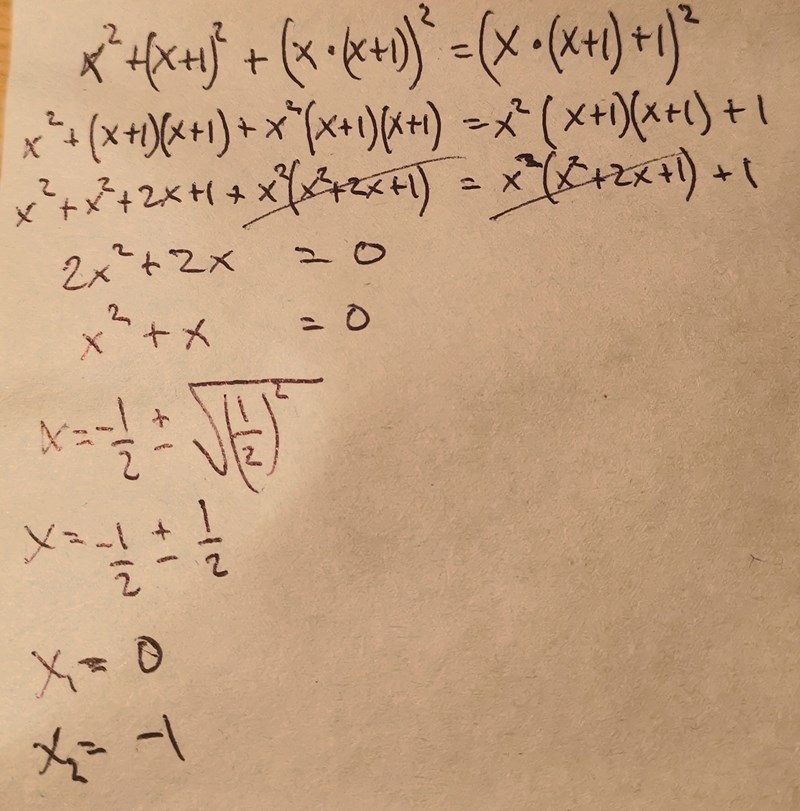 x² + (x+1)² + (x·(x+1))² = (x·(x+1)+1)²
x² + (x+1)(x+1) + x²(x+1)(x+1) = x²(x+1)(x+1) + 1
x² + x² + 2x + 1 + x²(x²+2x+1) = x²(x²+2x+1) + 1
2x² + 2x = 0
x² + x = 0
x = -1/2 ± √(1/2)²
x = -1/2 ± 1/2
x₁ = 0
x₂ = -1